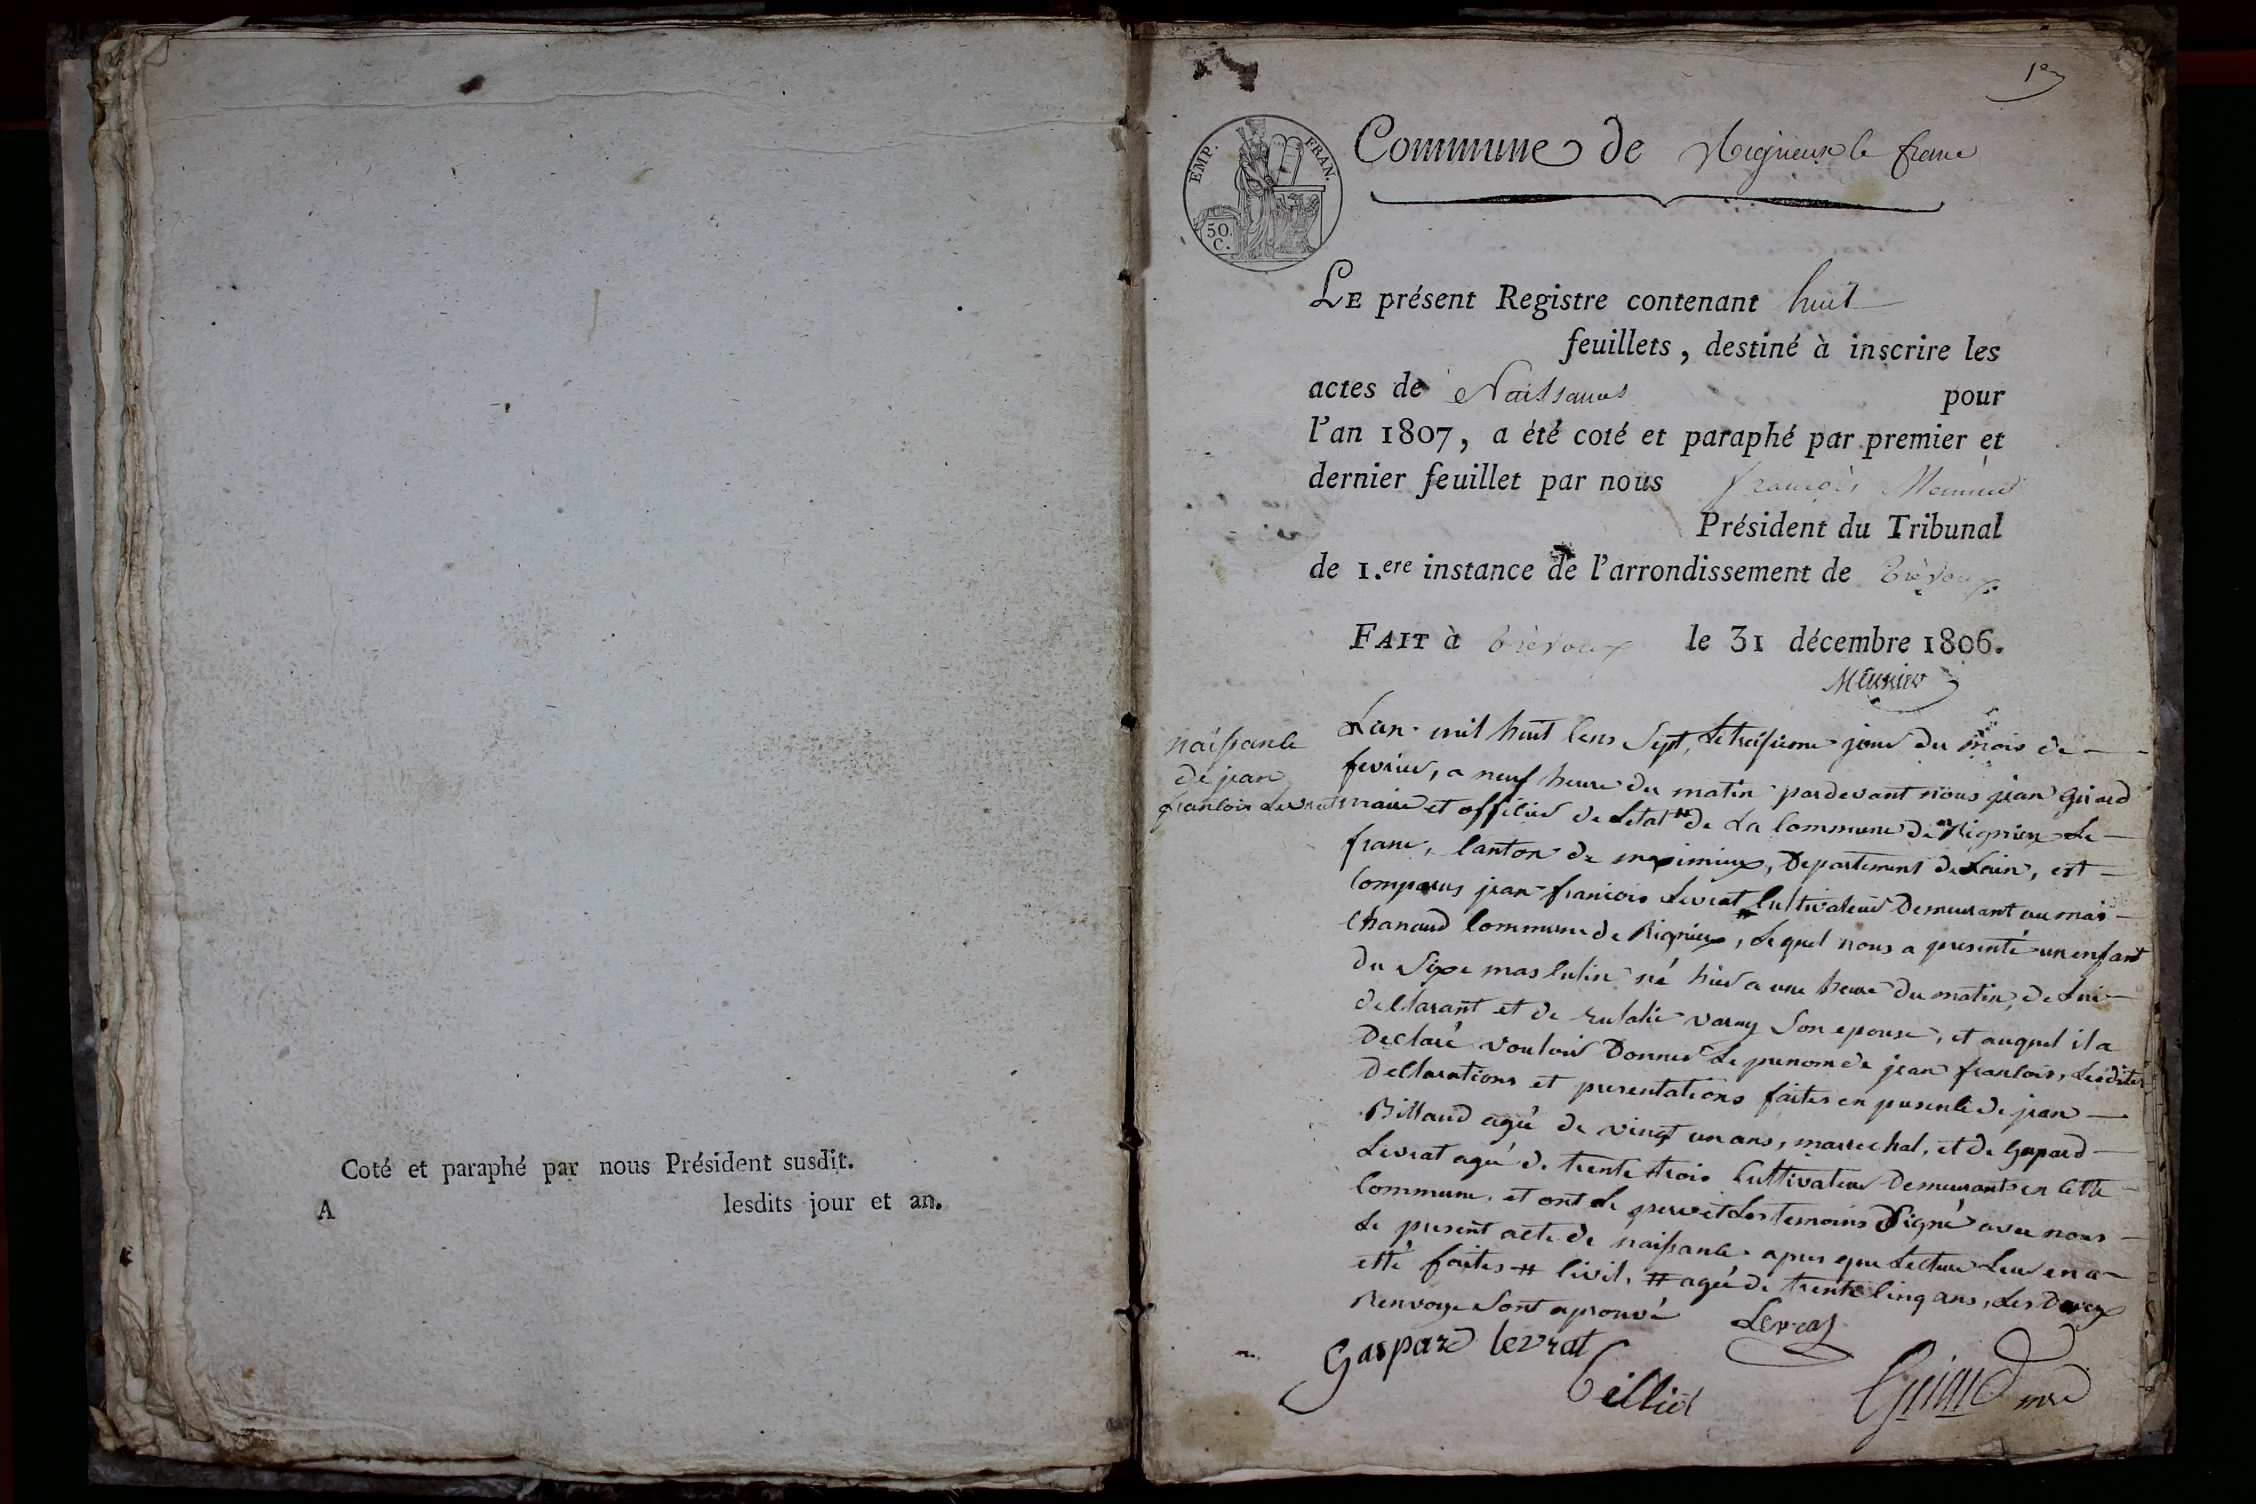 Coté et paraphé par nous Président susdit.
A lesdits jour et an.
1er
EMP. FRAN.
50. C.
Commune de Rignieux le franc
LE présent Registre contenant huit
feuillets, destiné à inscrire les
actes de Naissances pour
l'an 1807, a été coté et paraphé par premier et
dernier feuillet par nous françois Meunier
Président du Tribunal
de 1.ere instance de l'arrondissement de trévoux
FAIT à trévoux le 31 décembre 1806.
Meunier
naissance
de jean
francois Levrat
L'an mil huit cens sept, le treisieme jour du mois de
fevrier, a neuf heure du matin pardevant nous jean Girard
maire et officier de Letat # de La commune de Rignieux Le
franc, canton de meximieux, Departement de Lain, est
comparus jean-francois Levrat # cultivateur Demeurant au mas
chanaud commune de Rignieux, Lequel nous a presenté un enfant
du sexe masculin né hier a une heure du matin, de Lui
declarant et de Eulalie varay son epouse, et auquel il a
Declaré vouloir Donner Le prenom de jean francois, Lesdites
declarations et presentations faites en presence de jean
Billaud agé de vingt un ans, marrechal, et de Gaspard
Levrat agé de trente trois cultivateur Demeurants en cette
commune, et ont Le pere et Les temoins signé avec nous
Le present acte de naissance apres que Lecture Leur en a
etté faites # civil, # agé de trente cinq ans, Les Deux
Renvoye sont aprouvé
Levrat
Gaspard levrat
billiet
Girard mre